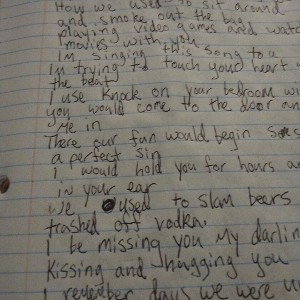 How we used to sit around
and smoke out the bag
playing video games and watch
movies with you
Im singing this song to a
Im trying to touch your heart
the beat
I use knock on your bedroom wi
you would come to the door an
me in
There our fun would begin
a perfect sin
I would hold you for hours an
in your ear
We used to slam bears
trashed off vodka.
I be missing you my darlin
Kissing and hugging you
I remember days we were u